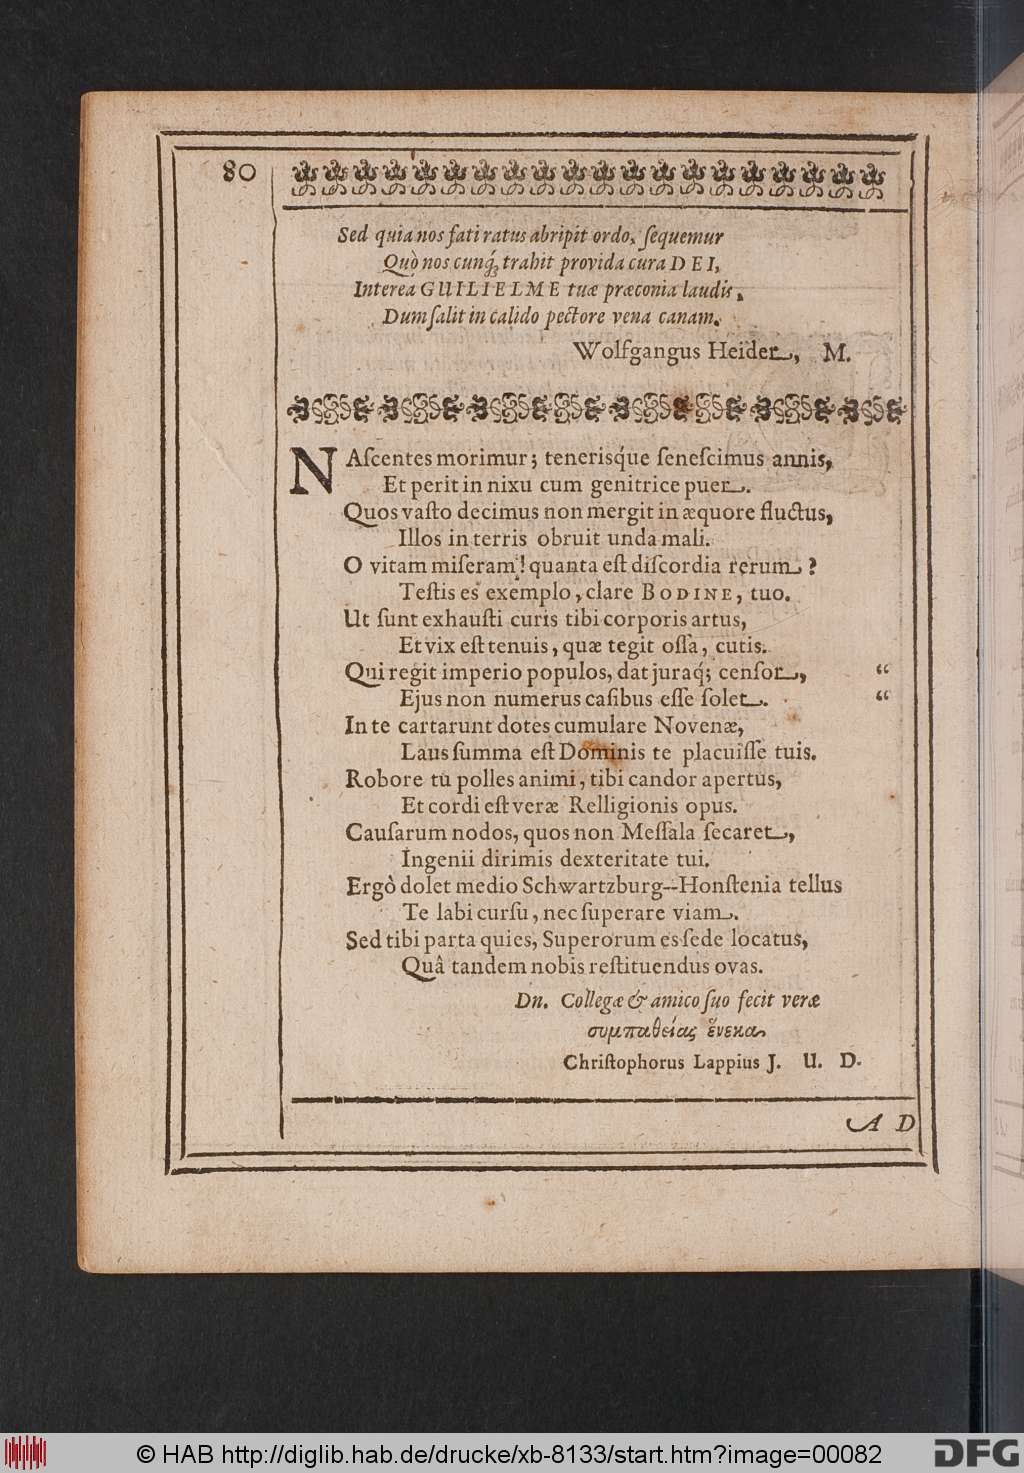 80
Sed quia nos fati ratus abripit ordo, ſequemur
Quò nos cunq́; trahit provida cura DEI,
Interea GUILIELME tuæ præconia laudis,
Dum ſalit in calido pectore vena canam.
Wolfgangus Heider, M.
NAſcentes morimur; tenerisq́ue ſeneſcimus annis,
Et perit in nixu cum genitrice puer.
Quos vaſto decimus non mergit in æquore fluctus,
Illos in terris obruit unda mali.
O vitam miſeram! quanta eſt diſcordia rerum?
Teſtis es exemplo, clare BODINE, tuo.
Ut ſunt exhauſti curis tibi corporis artus,
Et vix eſt tenuis, quæ tegit oſſa, cutis.
Qui regit imperio populos, dat juraq́; cenſor, “
Ejus non numerus caſibus eſſe ſolet. “
In te cartarunt dotes cumulare Novenæ,
Laus ſumma eſt Dominis te placuiſſe tuis.
Robore tu polles animi, tibi candor apertus,
Et cordi eſt veræ Relligionis opus.
Cauſarum nodos, quos non Meſſala ſecaret,
Ingenii dirimis dexteritate tui.
Ergò dolet medio Schwartzburg-Honſtenia tellus
Te labi curſu, nec ſuperare viam.
Sed tibi parta quies, Superorum es ſede locatus,
Quâ tandem nobis reſtituendus ovas.
Dn. Collegæ & amico ſuo fecit veræ
συμπαθείας ἕνεκα
Chriſtophorus Lappius J. U. D.
A D
© HAB http://diglib.hab.de/drucke/xb-8133/start.htm?image=00082
DFG